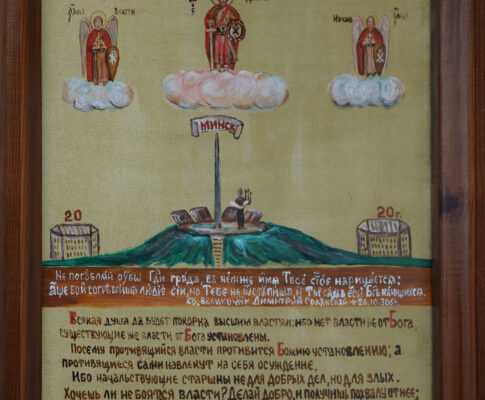 Власти
Начал
МИНСК
20 20г.
Не погубляй убо Гди града, в немже имя Твое стое нарицается:
аще бо и согрешиша людие сии, но Тебе не отступиша
св. великомчн Димитрий Солунский +26.10.306г.
Всякая душа да будет покорна высшим властям: ибо нет власти не от Бога,
существующие же власти от Бога установлены.
Посему противящийся власти противится Божию установлению; а
противящиеся сами навлекут на себя осуждение.
Ибо начальствующие страшны не для добрых дел, но для злых.
Хочешь ли не бояться власти? Делай добро, и получишь похвалу от нее;